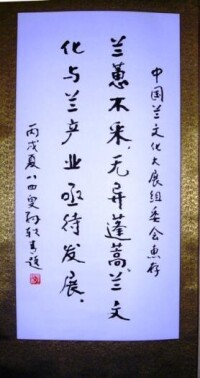 中国兰文化大展组委会惠存
兰蕙不采，无异蓬蒿，兰文
化与兰产业亟待发展．
丙戌夏八四叟孙轶青题